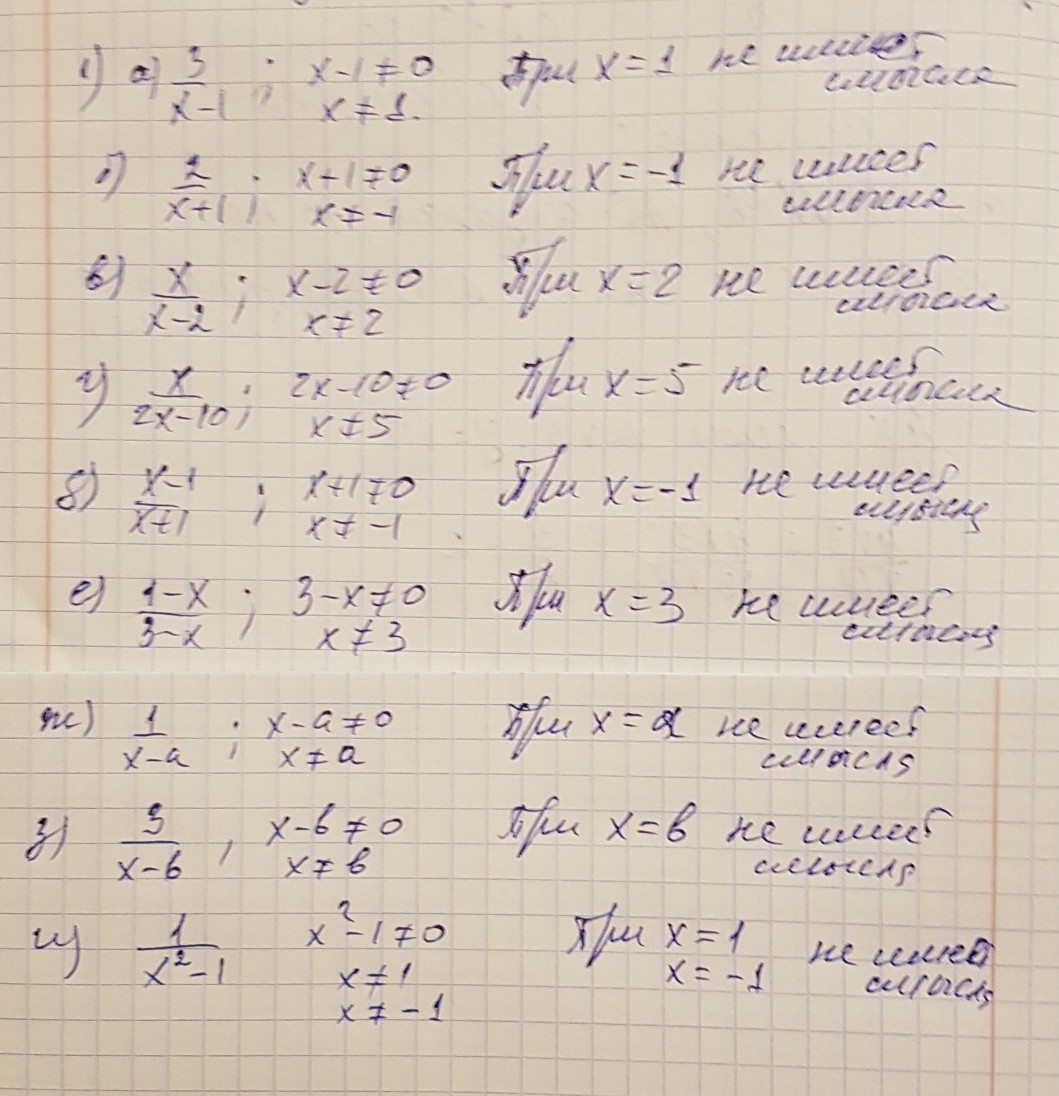 1) а) 3/(x-1); x-1≠0 При x=1 не имеет
x≠1. смысла
б) 2/(x+1); x+1≠0 При x=-1 не имеет
x≠-1 смысла
в) x/(x-2); x-2≠0 При x=2 не имеет
x≠2 смысла
г) x/(2x-10); 2x-10≠0 При x=5 не имеет
x≠5 смысла
д) (x-1)/(x+1); x+1≠0 При x=-1 не имеет
x≠-1 смысла
е) (1-x)/(3-x); 3-x≠0 При x=3 не имеет
x≠3 смысла
ж) 1/(x-a); x-a≠0 При x=a не имеет
x≠a смысла
з) 3/(x-b), x-b≠0 При x=b не имеет
x≠b смысла
и) 1/(x²-1) x²-1≠0 При x=1 не имеет
x≠1 x=-1 смысла
x≠-1